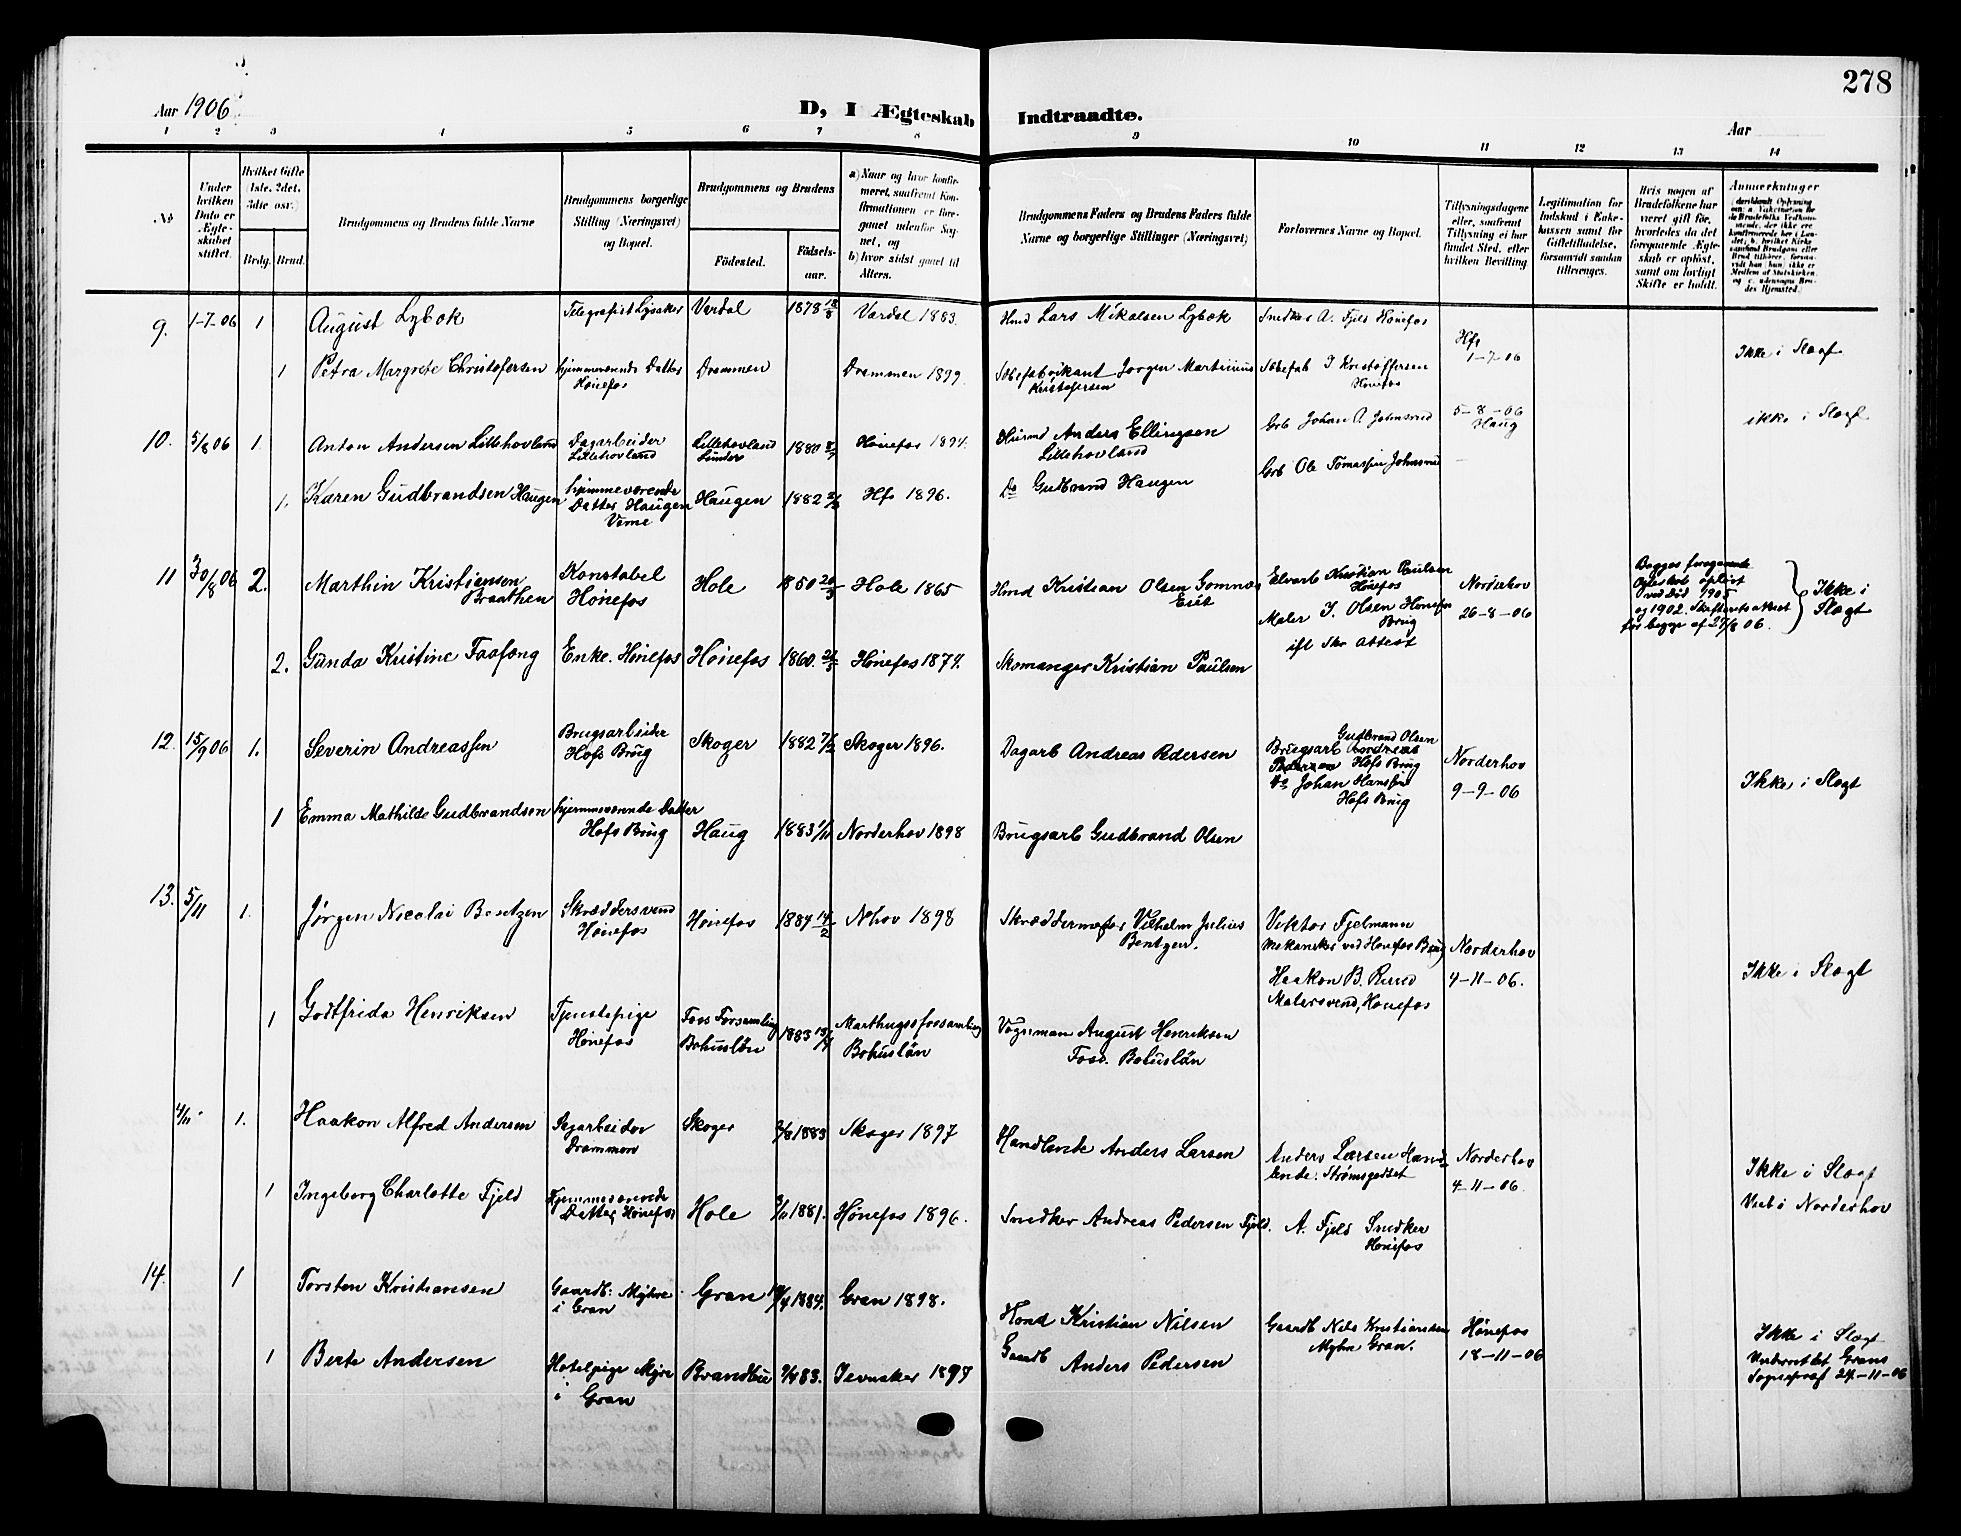 278
Aar 1906
D, I Ægteskab Indtraadte.
Aar
1 2 3 4 5 6 7 8 9 10 11 12 13 14
No
Under hvilken Dato er Ægteskabet stiftet.
Hvilket Gifte (1ste, 2det, 3die osv.)
Brdg. Brud.
Brudgommens og Brudens fulde Navne
Brudgommens borgerlige Stilling (Næringsvei) og Bopæl.
Brudgommens og Brudens
Födested. Födselsaar.
a) Naar og hvor konfirmeret, saafremt Konfirmationen er foregaaet udenfor Sognet, og
b) hvor sidst gaaet til Alters.
Brudgommens Faders og Brudens Faders fulde Navne og borgerlige Stillinger (Næringsvei)
Forlovernes Navne og Bopæl.
Tillysningsdagene eller, saafremt Tillysning ei har fundet Sted, efter hvilken Bevilling
Legitimation for Indskud i Enkekassen samt for Giftetilladelse, forsaavidt saadan tiltrænges.
Hvis nogen af Brudefolkene har været gift för, hvorledes da det foregaaende Ægteskab er oplöst, samt om lovligt Skifte er holdt.
Anmærkninger
9. 1-7-06 1 August Lybæk Telegrafist Lysaker Vardal 1878 18/8 Vardal 1883. Hmd Lars Mikalsen Lybæk Snedker A. Fjeld Hönefos Hfs 1-7-06 Ikke i Slægt
1 Petra Margrete Christofersen hjemmeværende Datter Hönefos Drammen Drammen 1899 Sæbefabrikant Jørgen Martinius Kristofersen Sæbefab I Kristoffersen Hönefos
10. 5/8 06 1. Anton Andersen Lillehovland Dagarbeider Lillehovland Lillehovland Lunder 1880 Hönefos 1894. Husmd Anders Ellingsen Lillehovland Grb Johan 5-8-06 Haug ikke i Slægt
1. Karen Gudbrandsen Haugen hjemmeværende Datter Haugen Veme Haugen 1882 Hfs 1896. Do Gudbrand Haugen Grb Ole
11 30/8 06 2. Marthin Kristiansen Braathen Konstabel Hönefos Hole 1850 Hole 1865 Hmd Kristian Olsen Gomnæs Eiet Elvarb Kristian Paulsen Hönefos Maler I. Olsen Hönefos Brug ifl Skr Attest Norderhov 26-8-06 Begges foregaaende Ægteskab opløst ved Død 1905 og 1902. Skifteretsattest for begge af 27/8 06. Ikke i Slægt
2. Gunda Kristine Faafæng Enke. Hönefos Hönefos 1860. Hönefos 1874. Skomager Kristian Paulsen
12. 15/9 06 1. Severin Andreassen Brugsarbeider Hofs Brug Skoger 1882 Skoger 1896. Dagarb Andreas Pedersen Brugsarb Gudbrand Olsen Hofs Brug Do Johan Hansen Hofs Brug Norderhov 9-9-06 Ikke i Slægt
1 Emma Mathilde Gudbrandsen hjemmeværende Datter Hofs Brug Haug 1883 1/11 Norderhov 1898 Brugsarb Gudbrand Olsen
13. 5/11 1. Jørgen Nicolai Bentzen Skræddersvend Hönefos Hönefos 1884 14/2 Nhov 1898 Skræddermester Vilhelm Julius Bentzen. Viktor Fjelmann Mekaniker ved Hönefos Brug Haakon B. Ruud Malersvend, Hönefos Norderhov 4-11-06. Ikke i Slægt
1 Godtfrida Henriksen Tjenestepige Hönefos Foss Forsamling Bohuslän 1883 Bohuslän Vognman August Henriksen Foss. Bohuslän
4/11 1. Haakon Alfred Andersen Dagarbeider Drammen Skoger 1883 Skoger 1897 Handlende Anders Larsen Anders Larsen Handlende. Strømsgodset Norderhov 4-11-06. Ikke i Slægt Viet i Norderhov
1 Ingeborg Charlotte Fjeld Hjemmeværende Datter Hönefos Hole 1881. Hönefos 1896. Snedker Andreas Pedersen Fjeld. A. Fjeld Snedker Hönefos
14. 1 Torsten Kristiansen Gaardb: Myhre i Gran Gran 1884. Gran 1898. Hmd Kristian Nilsen Gaardb Nils Kristiansen Myhre Gran. Hönefos 18-11-06 Ikke i Slægt Underrettet Grans Sognepræst 24-11-06
1 Berte Andersen Hotelpige Myre i Gran Brandbu 83. Jevnaker 1897 Gaardb Anders Pedersen